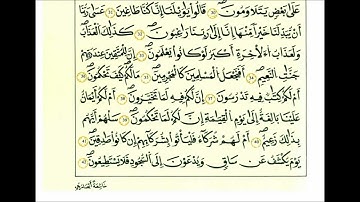 عَلَىٰ بَعْضٍ يَتَلَٰوَمُونَ ٣٠ قَالُوا۟ يَٰوَيْلَنَآ إِنَّا كُنَّا طَٰغِينَ ٣١ عَسَىٰ رَبُّنَآ
أَن يُبْدِلَنَا خَيْرًا مِّنْهَآ إِنَّآ إِلَىٰ رَبِّنَا رَٰغِبُونَ ٣٢ كَذَٰلِكَ ٱلْعَذَابُ
وَلَعَذَابُ ٱلْءَاخِرَةِ أَكْبَرُ لَوْ كَانُوا۟ يَعْلَمُونَ ٣٣ إِنَّ لِلْمُتَّقِينَ عِندَ رَبِّهِمْ
جَنَّٰتِ ٱلنَّعِيمِ ٣٤ أَفَنَجْعَلُ ٱلْمُسْلِمِينَ كَٱلْمُجْرِمِينَ ٣٥ مَا لَكُمْ كَيْفَ تَحْكُمُونَ ٣٦
أَمْ لَكُمْ كِتَٰبٌ فِيهِ تَدْرُسُونَ ٣٧ إِنَّ لَكُمْ فِيهِ لَمَا تَخَيَّرُونَ ٣٨ أَمْ لَكُمْ أَيْمَٰنٌ
عَلَيْنَا بَٰلِغَةٌ إِلَىٰ يَوْمِ ٱلْقِيَٰمَةِ إِنَّ لَكُمْ لَمَا تَحْكُمُونَ ٣٩ سَلْهُمْ أَيُّهُم
بِذَٰلِكَ زَعِيمٌ ٤٠ أَمْ لَهُمْ شُرَكَآءُ فَلْيَأْتُوا۟ بِشُرَكَآئِهِمْ إِن كَانُوا۟ صَٰدِقِينَ ٤١
يَوْمَ يُكْشَفُ عَن سَاقٍ وَيُدْعَوْنَ إِلَى ٱلسُّجُودِ فَلَا يَسْتَطِيعُونَ ٤٢